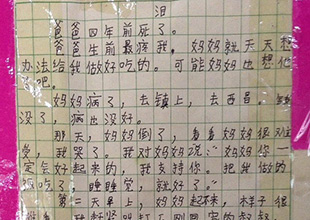 泪
爸爸四年前死了。
爸爸生前最疼我。妈妈就天天想
办法给我做好吃的。可能妈妈也想他
了吧。
妈妈病了，去镇上，去西昌。钱
没了，病也没好。
那天，妈妈倒了，看着妈妈很难
受，我哭了。我对妈妈说：“妈妈你一
定会好起来的，我支持你。把我做的
饭吃了，睡睡觉，就好了。”
第二天早上，妈妈起不来，样子很